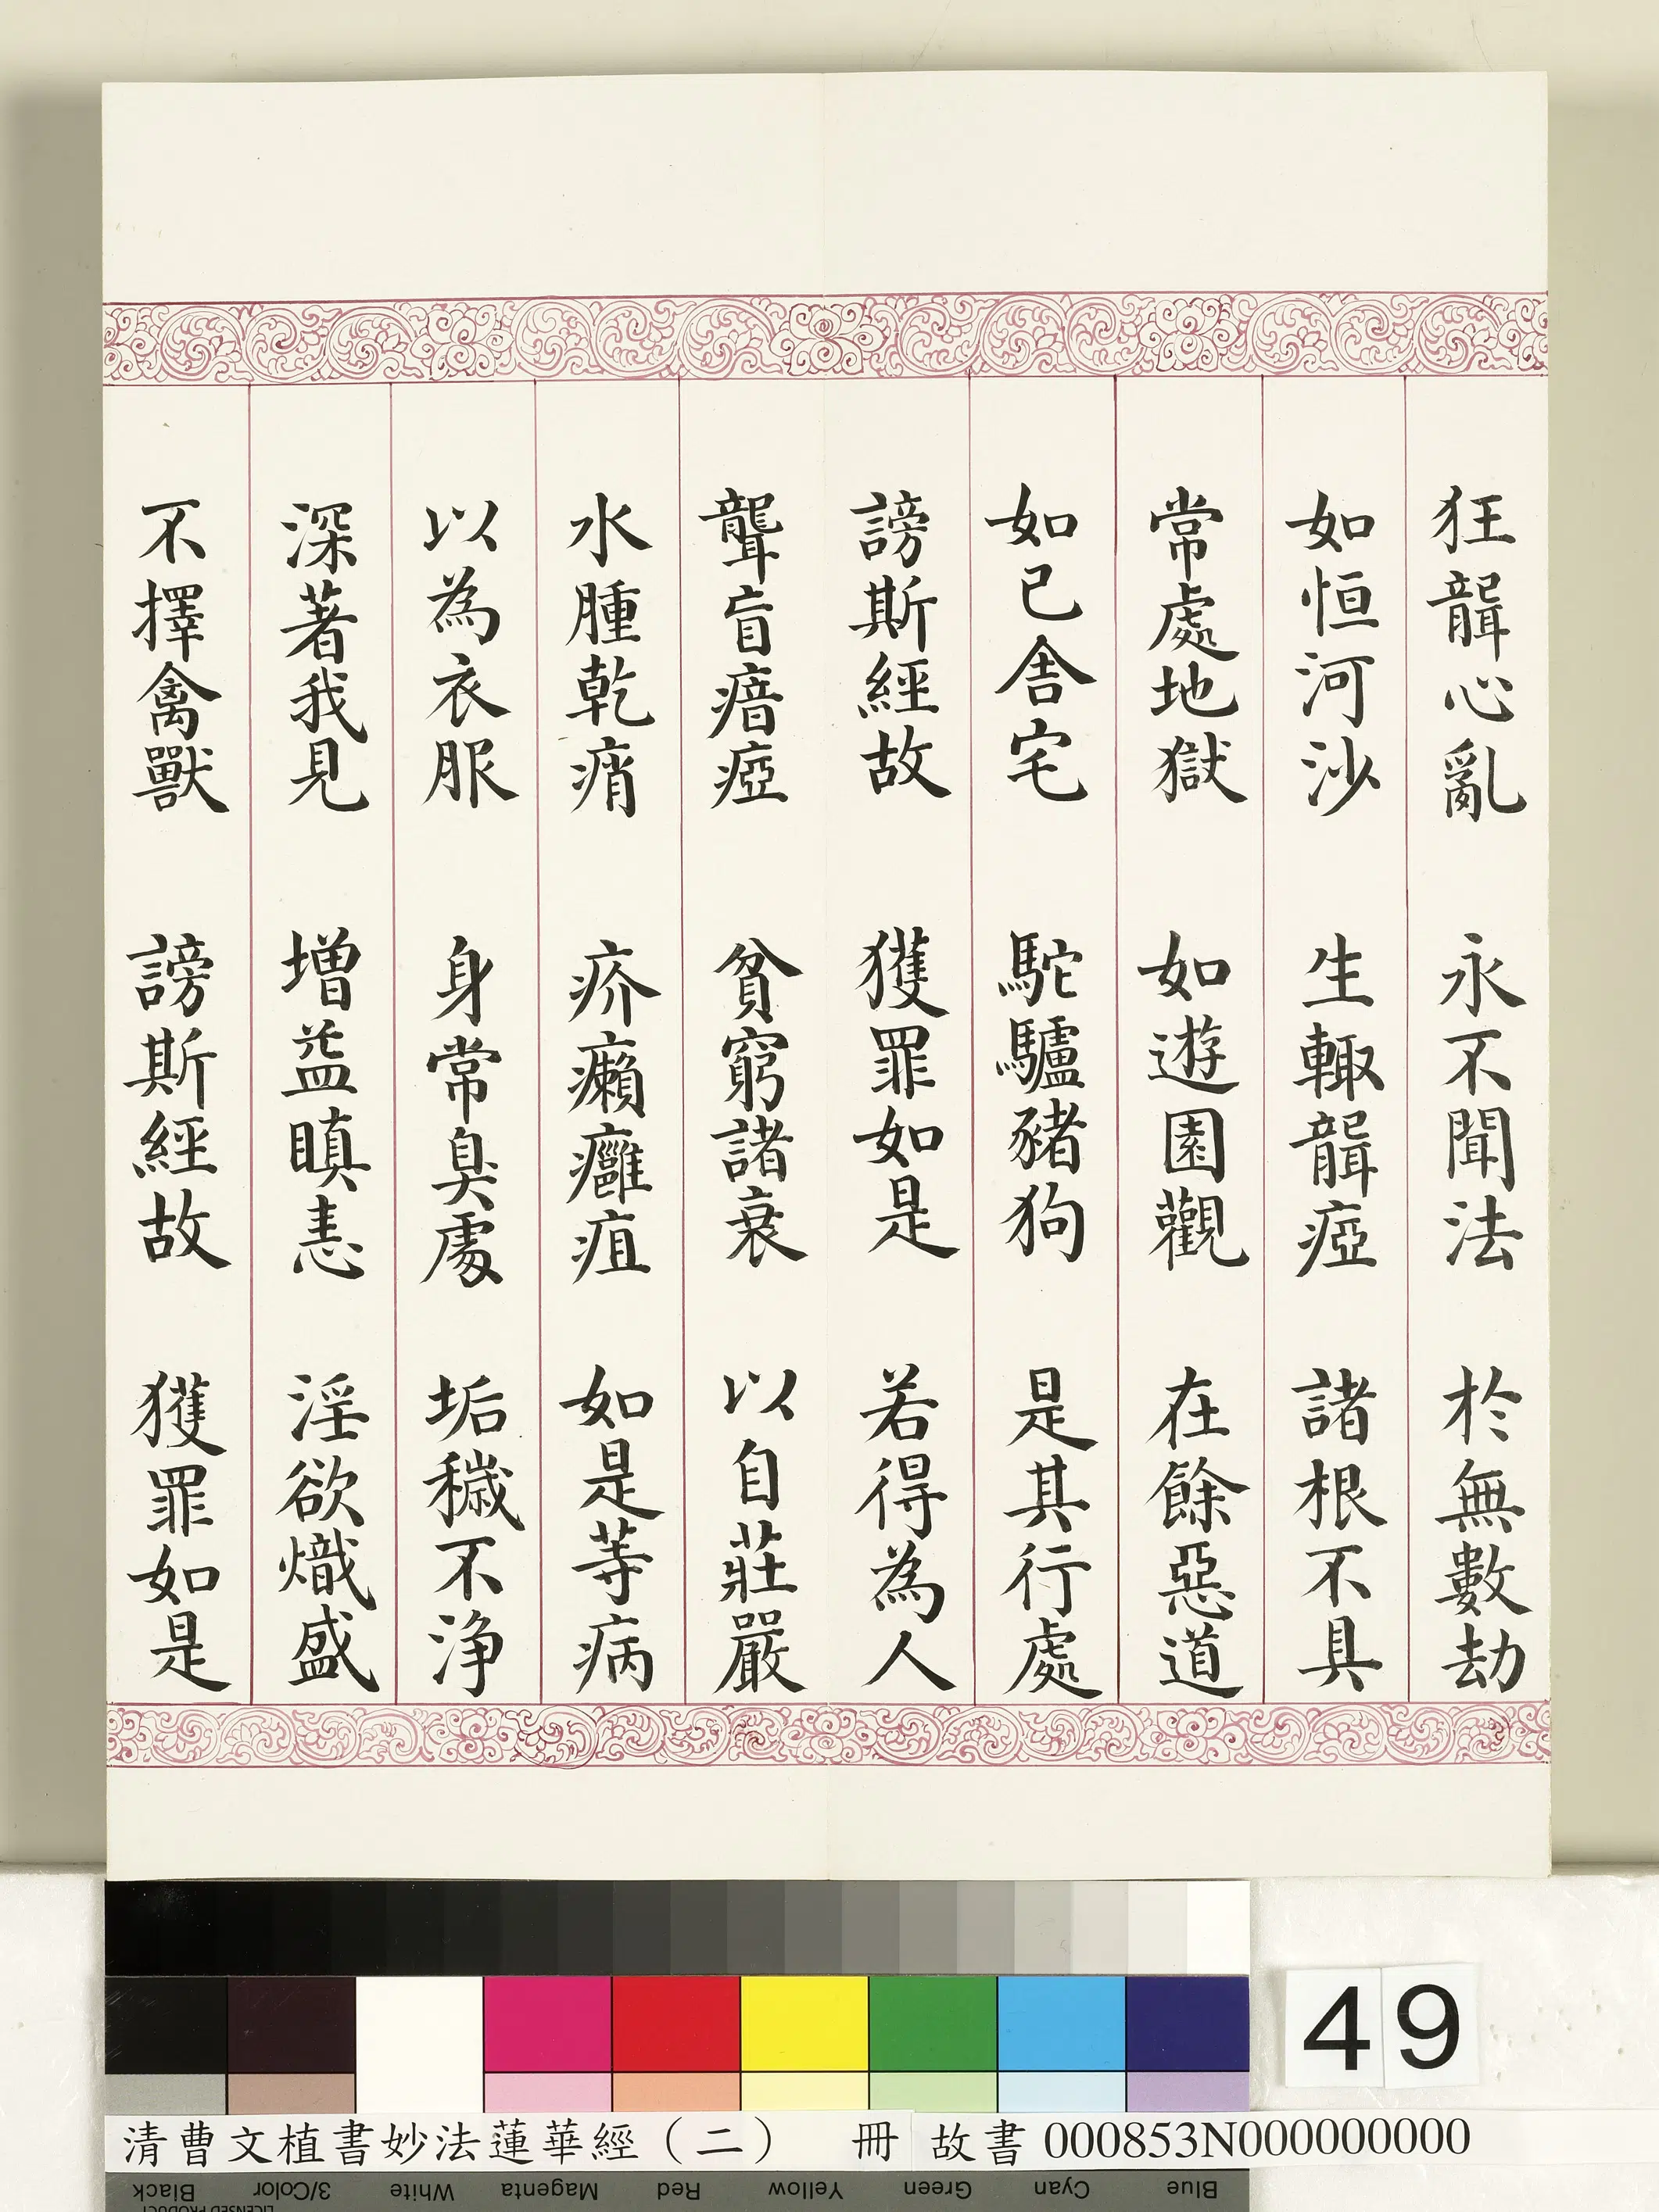 狂聾心亂　永不聞法　於無數劫
如恒河沙　生輒聾瘂　諸根不具
常處地獄　如遊園觀　在餘惡道
如已舍宅　駝驢豬狗　是其行處
謗斯經故　獲罪如是　若得為人
聾盲瘖瘂　貧窮諸衰　以自莊嚴
水腫乾痟　疥癩癰疽　如是等病
以為衣服　身常臭處　垢穢不淨
深著我見　增益瞋恚　淫欲熾盛
不擇禽獸　謗斯經故　獲罪如是
49
清曹文植書妙法蓮華經（二）　冊　故書 000853N000000000
Black 3/Color White Magenta Red Yellow Green Cyan Blue
LICENSED PRODUCT